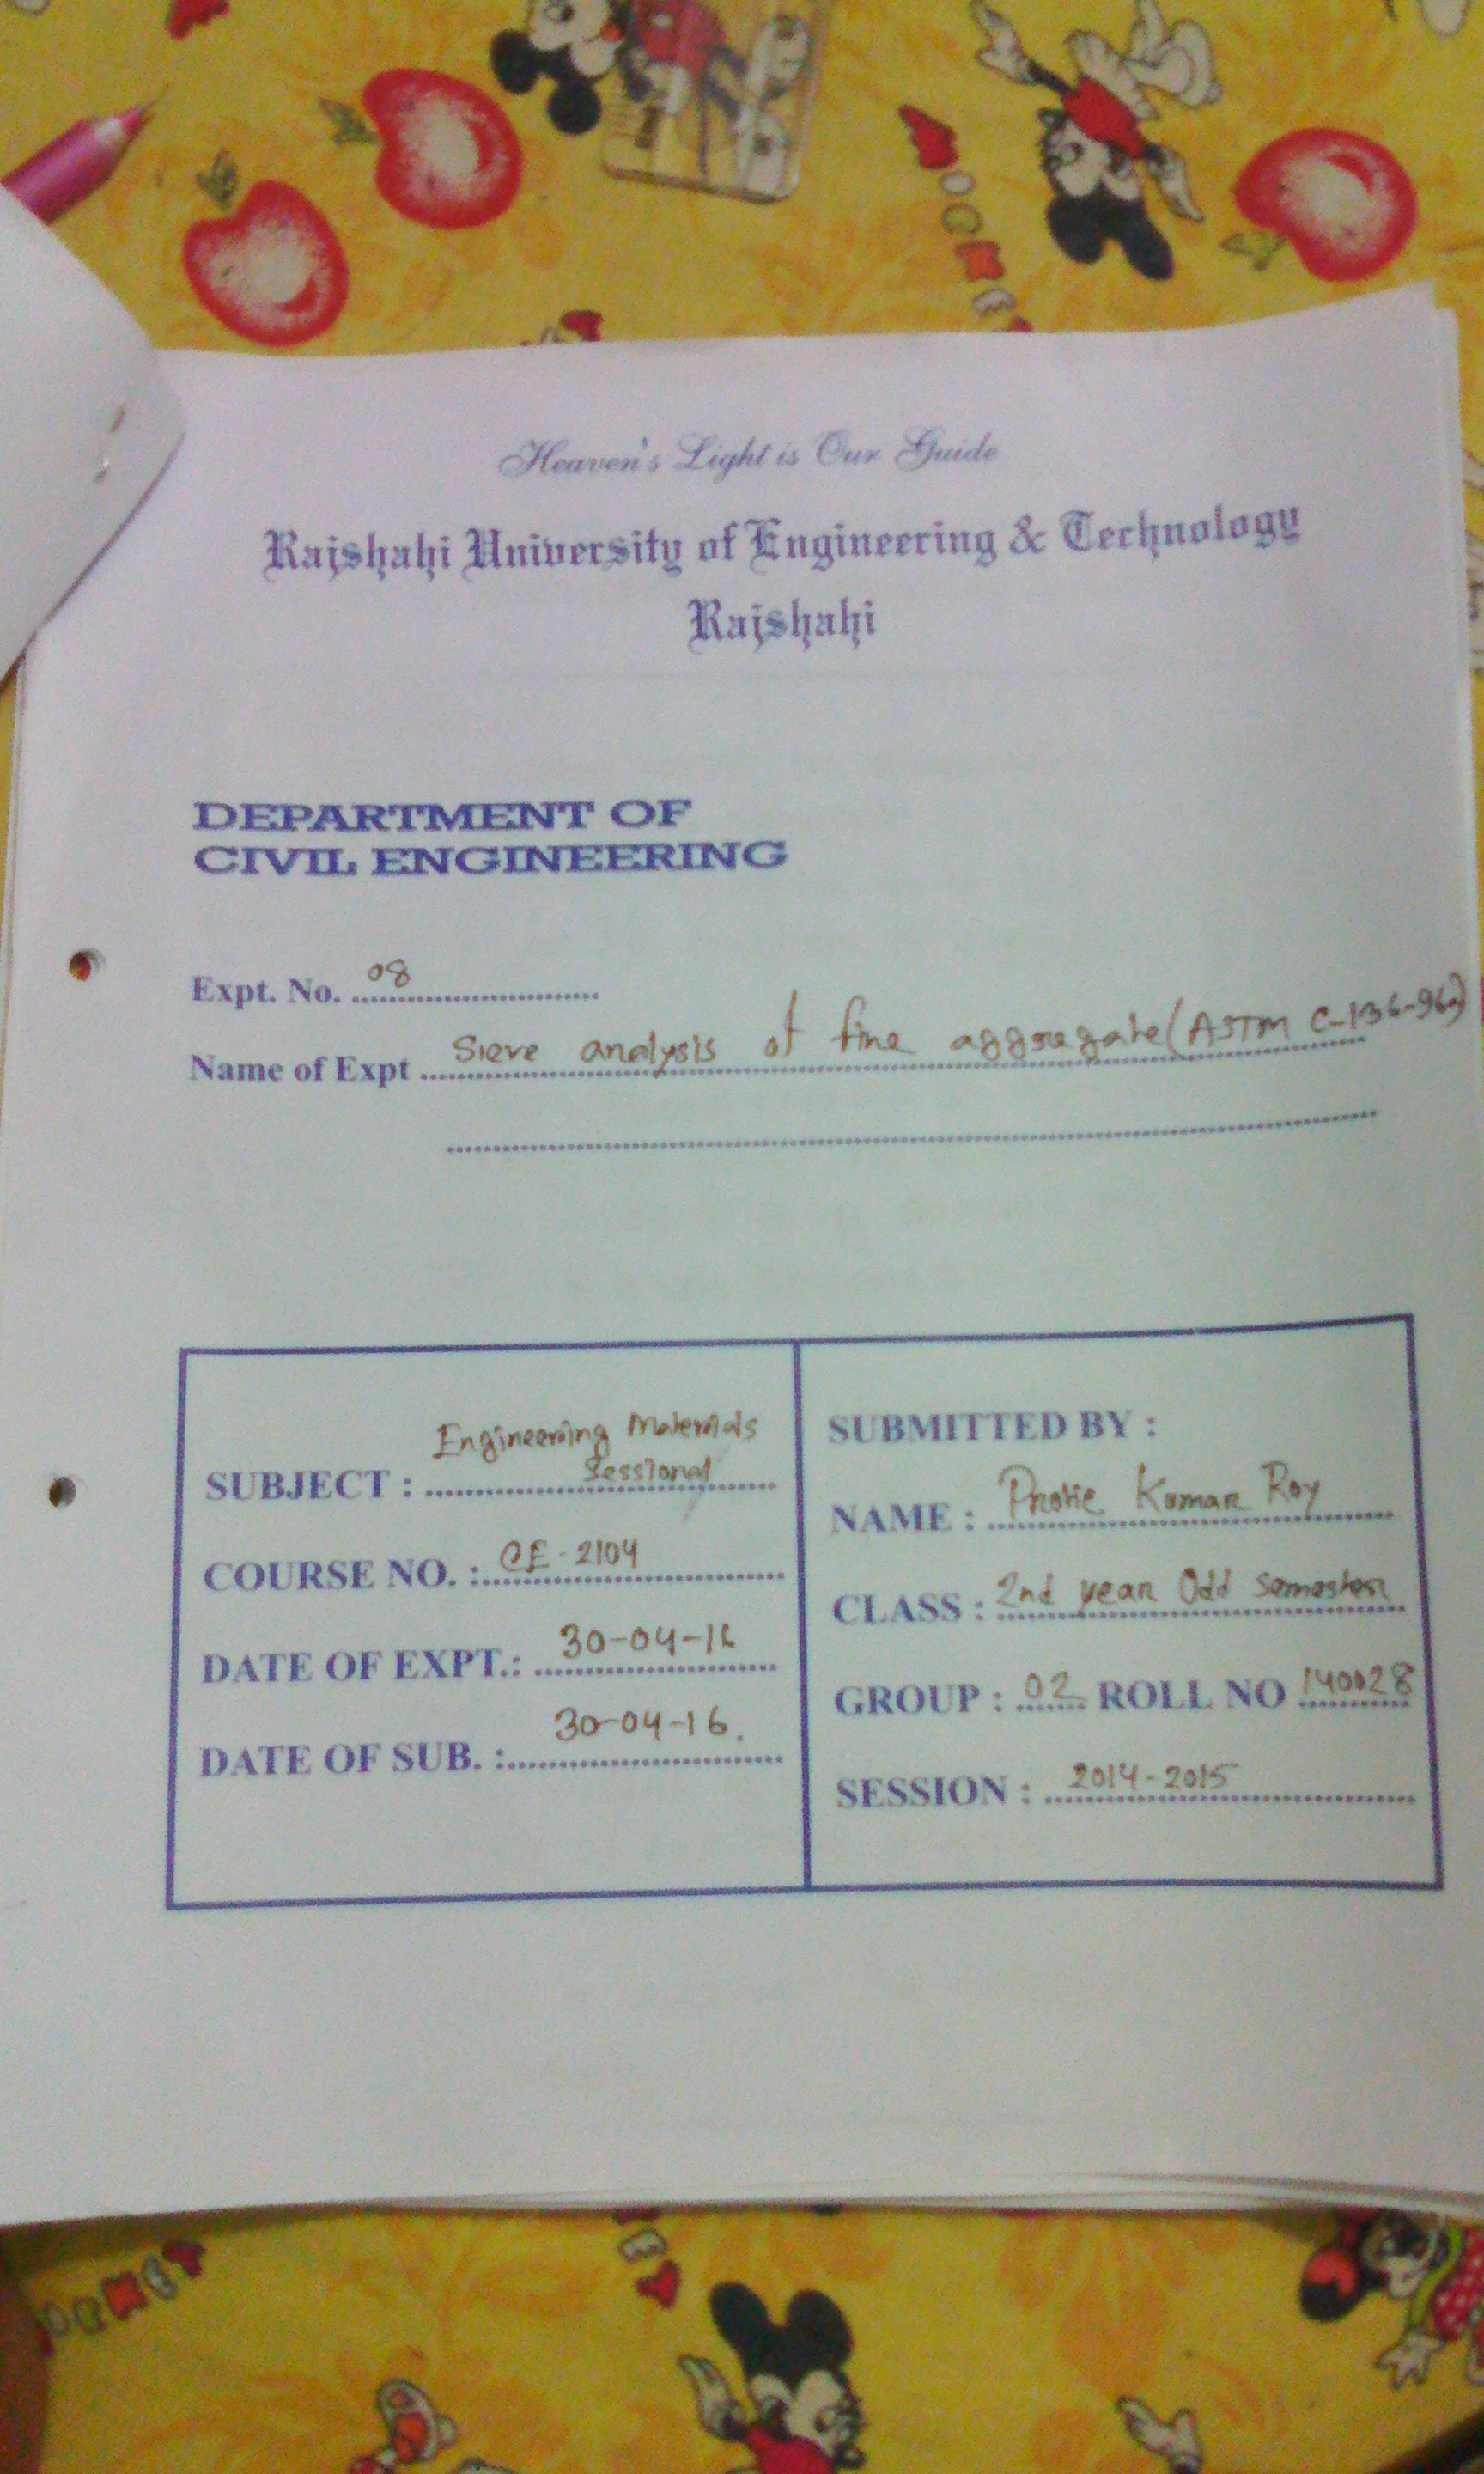 Heaven's Light is Our Guide
Rajshahi University of Engineering & Technology
Rajshahi
DEPARTMENT OF
CIVIL ENGINEERING
Expt. No. 08
Name of Expt Sieve analysis of fine aggregate (ASTM C-136-96a)
SUBJECT : Engineering Materials
Sessional
COURSE NO. : CE-2104
DATE OF EXPT.: 30-04-16
DATE OF SUB. : 30-04-16.
SUBMITTED BY :
NAME : Kumar Roy
CLASS : 2nd year Odd semester
GROUP : 02 ROLL NO 140028
SESSION : 2014-2015